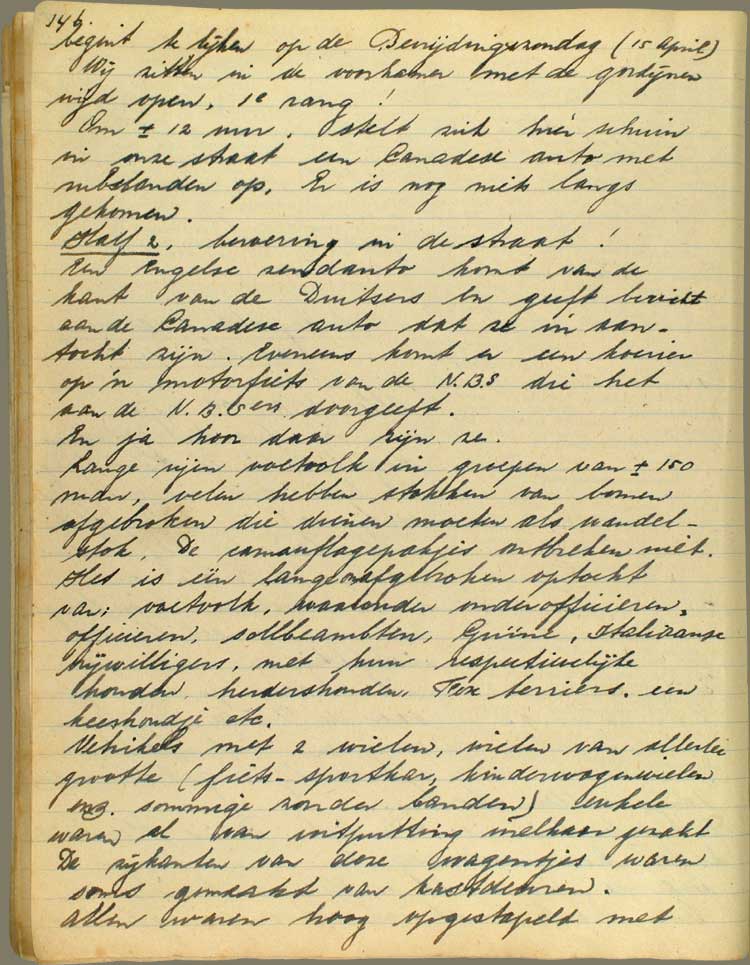 146
begint te lijken op de Bevrijdingszondag (15 april)
Wij zitten in de voorkamer met de gordijnen
wijd open, 1e rang!
Om ± 12 uur, stelt zich hier schuin
in onze straat een Canadese auto met
inbetanden op. Er is nog niets langs
gekomen.
Half 2, beroering in de straat!
Een Engelse zendauto komt van de
kant van de Duitsers en geeft bericht
aan de Canadese auto dat ze in aan-
tocht zijn. Eveneens komt er een koerier
op 'n motorfiets van de N.B.S die het
aan de N.B.Sers doorgeeft.
En ja hoor daar zijn ze.
Lange rijen voetvolk in groepen van ± 150
man, velen hebben stokken van bomen
afgebroken die dienen moeten als wandel-
stok. De camouflagepakjes ontbreken niet.
Het is één lange onafgebroken optocht
van: voetvolk, waaronder onderofficieren,
officieren, sollbeambten, Grüne, Italiaanse
vrijwilligers, met hun respectievelijke
honden, herdershonden, Fox terriers, een
keeshondje etc.
Vehikels met 2 wielen, wielen van allerlei
grootte (fiets- sportkar, kinderwagenwielen
enz. sommige zonder banden) enkele
waren al van uitputting inelkaar gezakt
De zijkanten van deze wagentjes waren
soms gemaakt van kastdeuren.
Allen waren hoog opgestapeld met